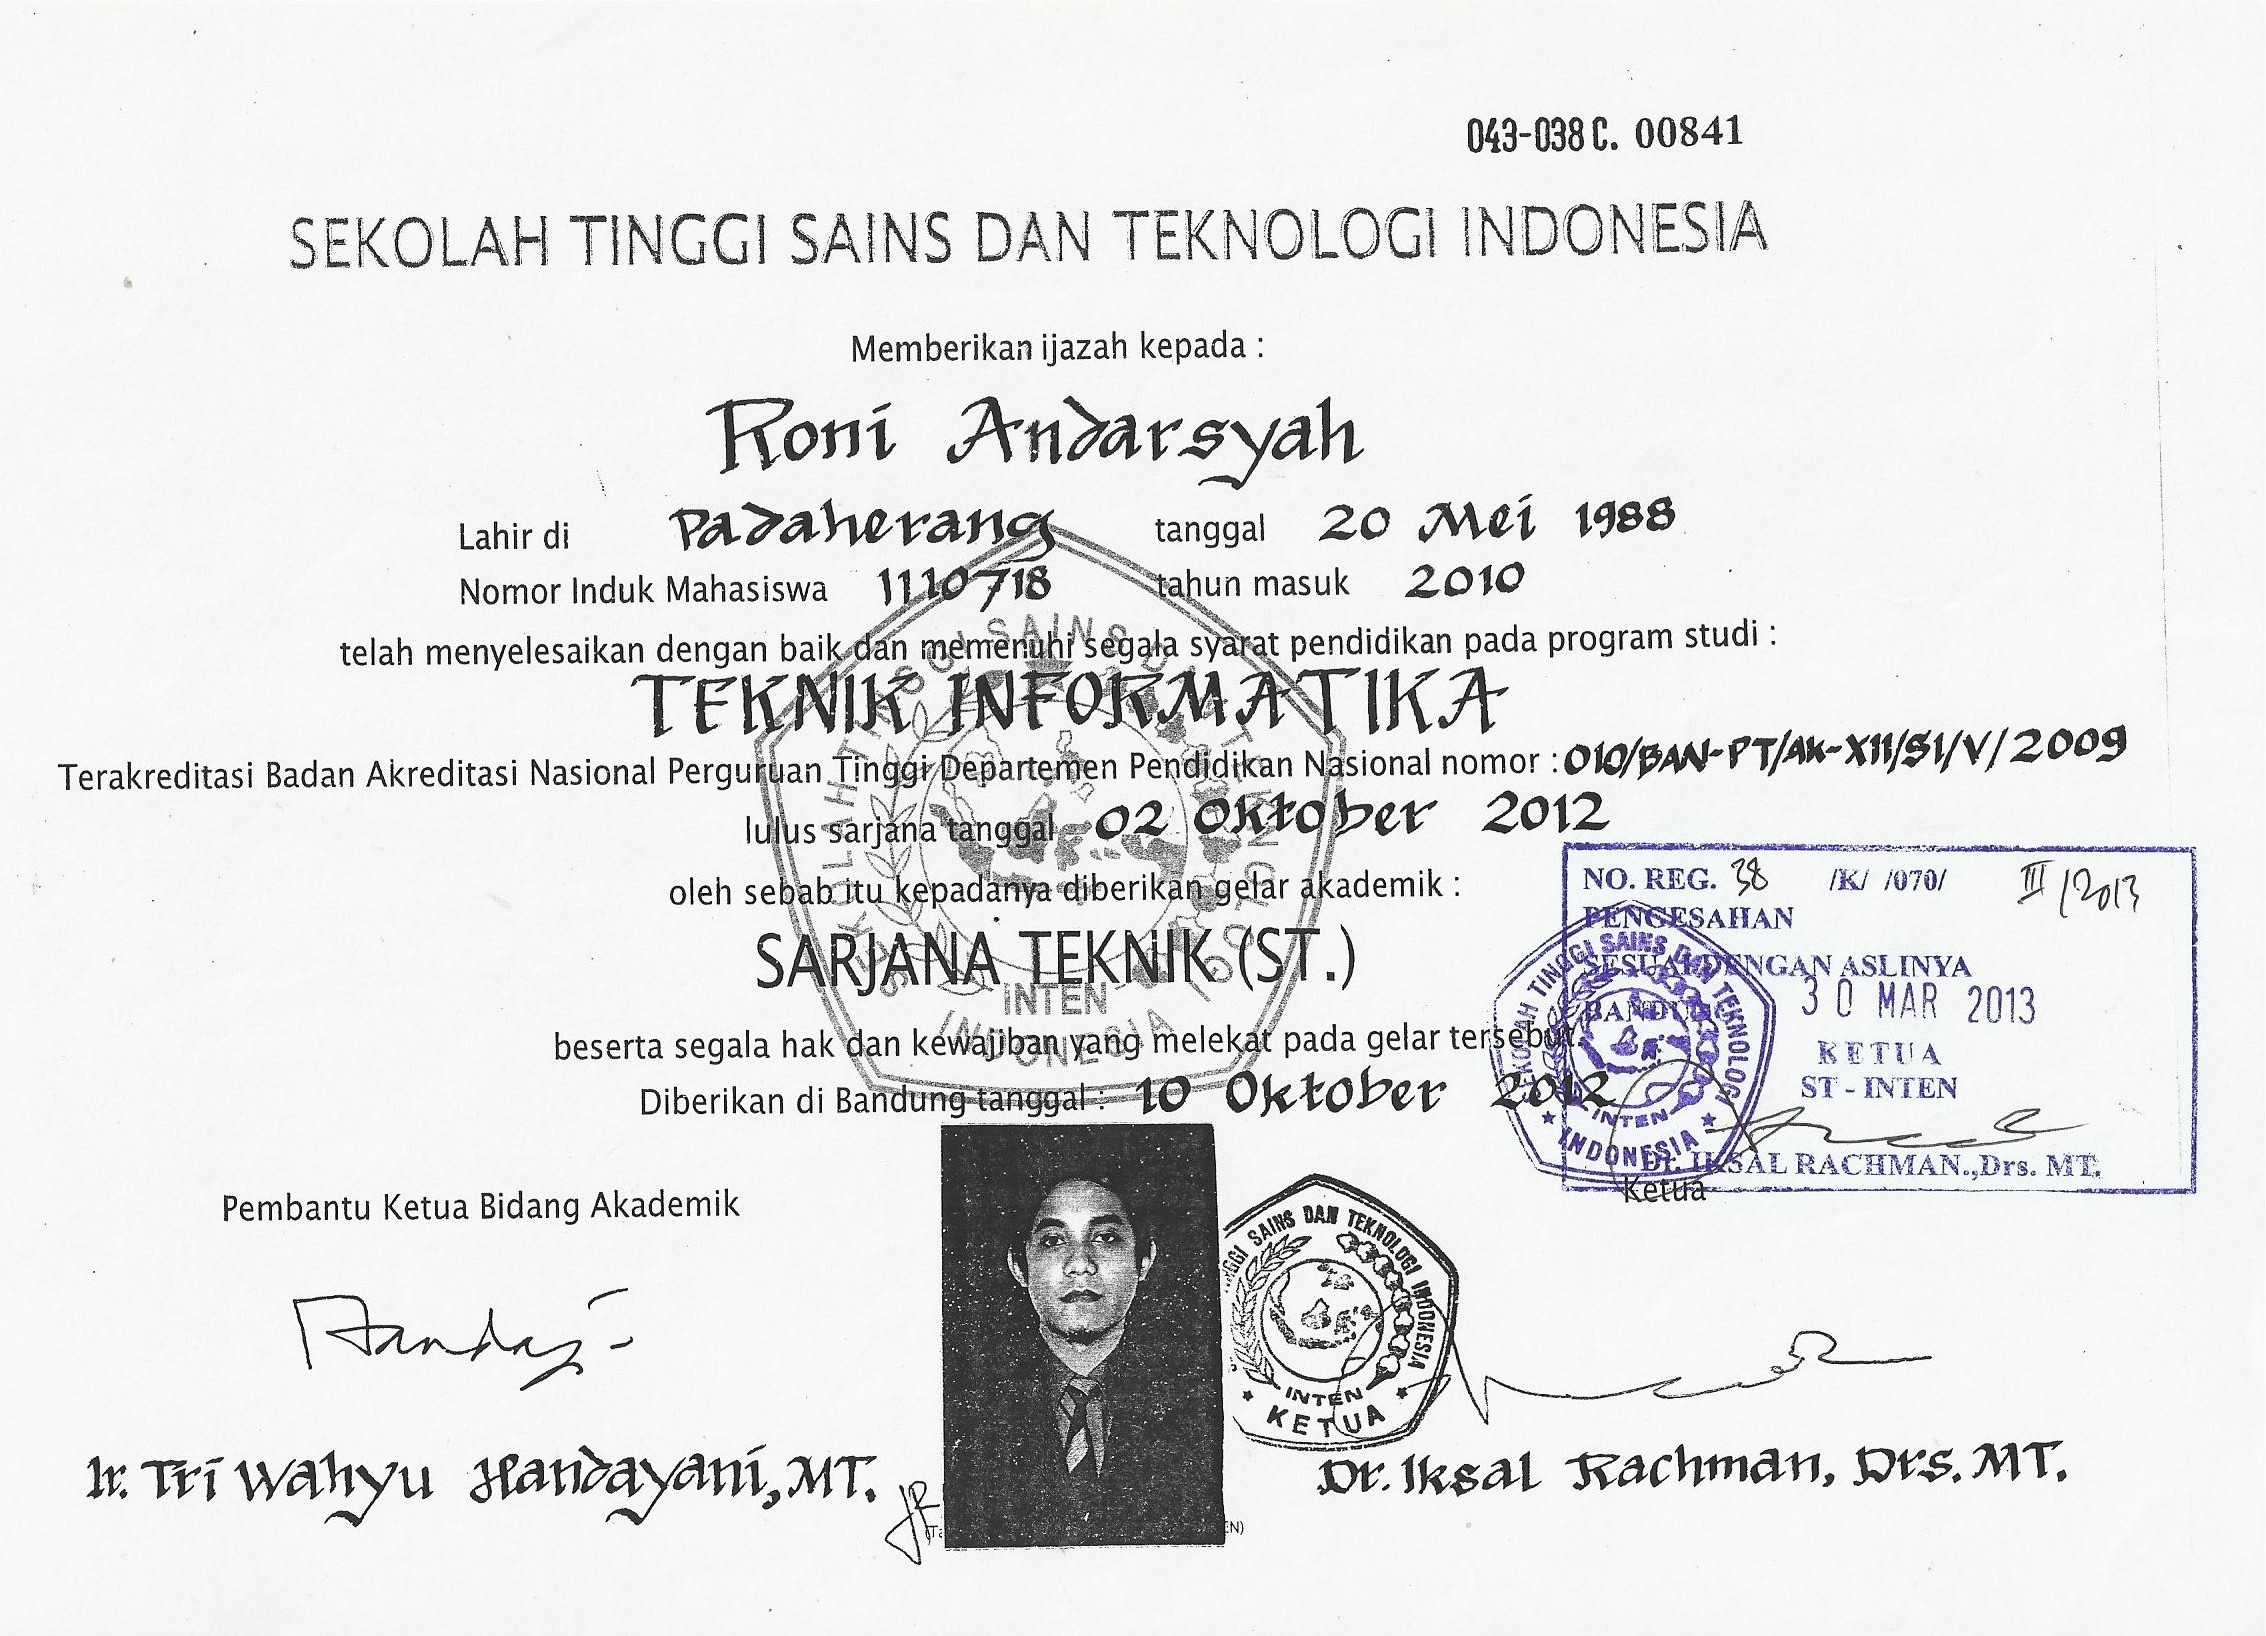 043-038 C. 00841
SEKOLAH TINGGI SAINS DAN TEKNOLOGI INDONESIA
Memberikan ijazah kepada :
Roni Andarsyah
Lahir di Padaherang tanggal 20 Mei 1988
Nomor Induk Mahasiswa 1110718 tahun masuk 2010
telah menyelesaikan dengan baik dan memenuhi segala syarat pendidikan pada program studi :
TEKNIK INFORMATIKA
Terakreditasi Badan Akreditasi Nasional Perguruan Tinggi Departemen Pendidikan Nasional nomor : 010/BAN-PT/AK-XII/S1/V/2009
lulus sarjana tanggal 02 Oktober 2012
oleh sebab itu kepadanya diberikan gelar akademik :
SARJANA TEKNIK (ST.)
beserta segala hak dan kewajiban yang melekat pada gelar tersebut.
Diberikan di Bandung tanggal : 10 Oktober 2012
NO. REG. 38 /K/ /070/ III/2013
PENGESAHAN
SESUAI DENGAN ASLINYA
BANDUNG 30 MAR 2013
KETUA
ST - INTEN
Dr. IKSAL RACHMAN.,Drs. MT.
SEKOLAH TINGGI SAINS DAN TEKNOLOGI
INTEN
INDONESIA
Pembantu Ketua Bidang Akademik
Ketua
GGI SAINS DAN TEKNOLOGI INDONESIA
INTEN
KETUA
Ir. Tri Wahyu Handayani, MT.
Dr. Iksal Rachman, Drs. MT.
SEKOLAH TINGGI SAINS DAN TEKNOLOGI
INTEN
INDONESIA